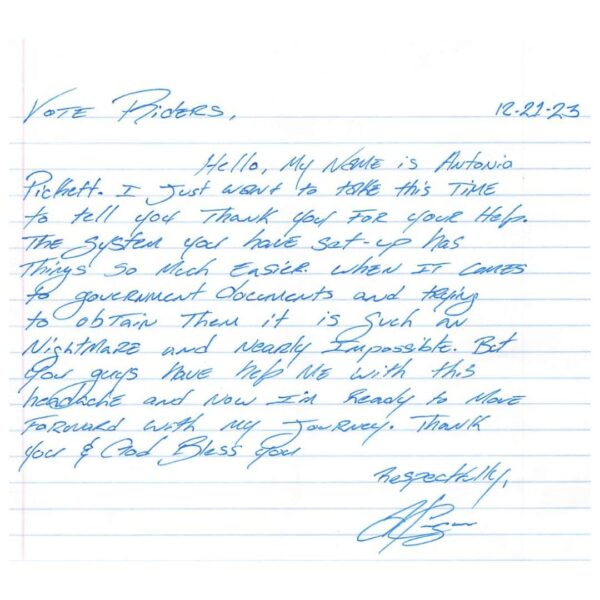 Vote Riders, 12-21-23
Hello, My Name is Antonio
Pickett. I Just want to take this Time
to tell you Thank you For your Help.
The System you have set-up has
Things So Much Easier. When It comes
to government documents and trying
to obtain Them it is Such an
Nightmare and Nearly Impossible. But
You guys Have help Me with this
headache and Now I'm Ready to Move
Forward with my Journey. Thank
You & God Bless You
Respectfully,